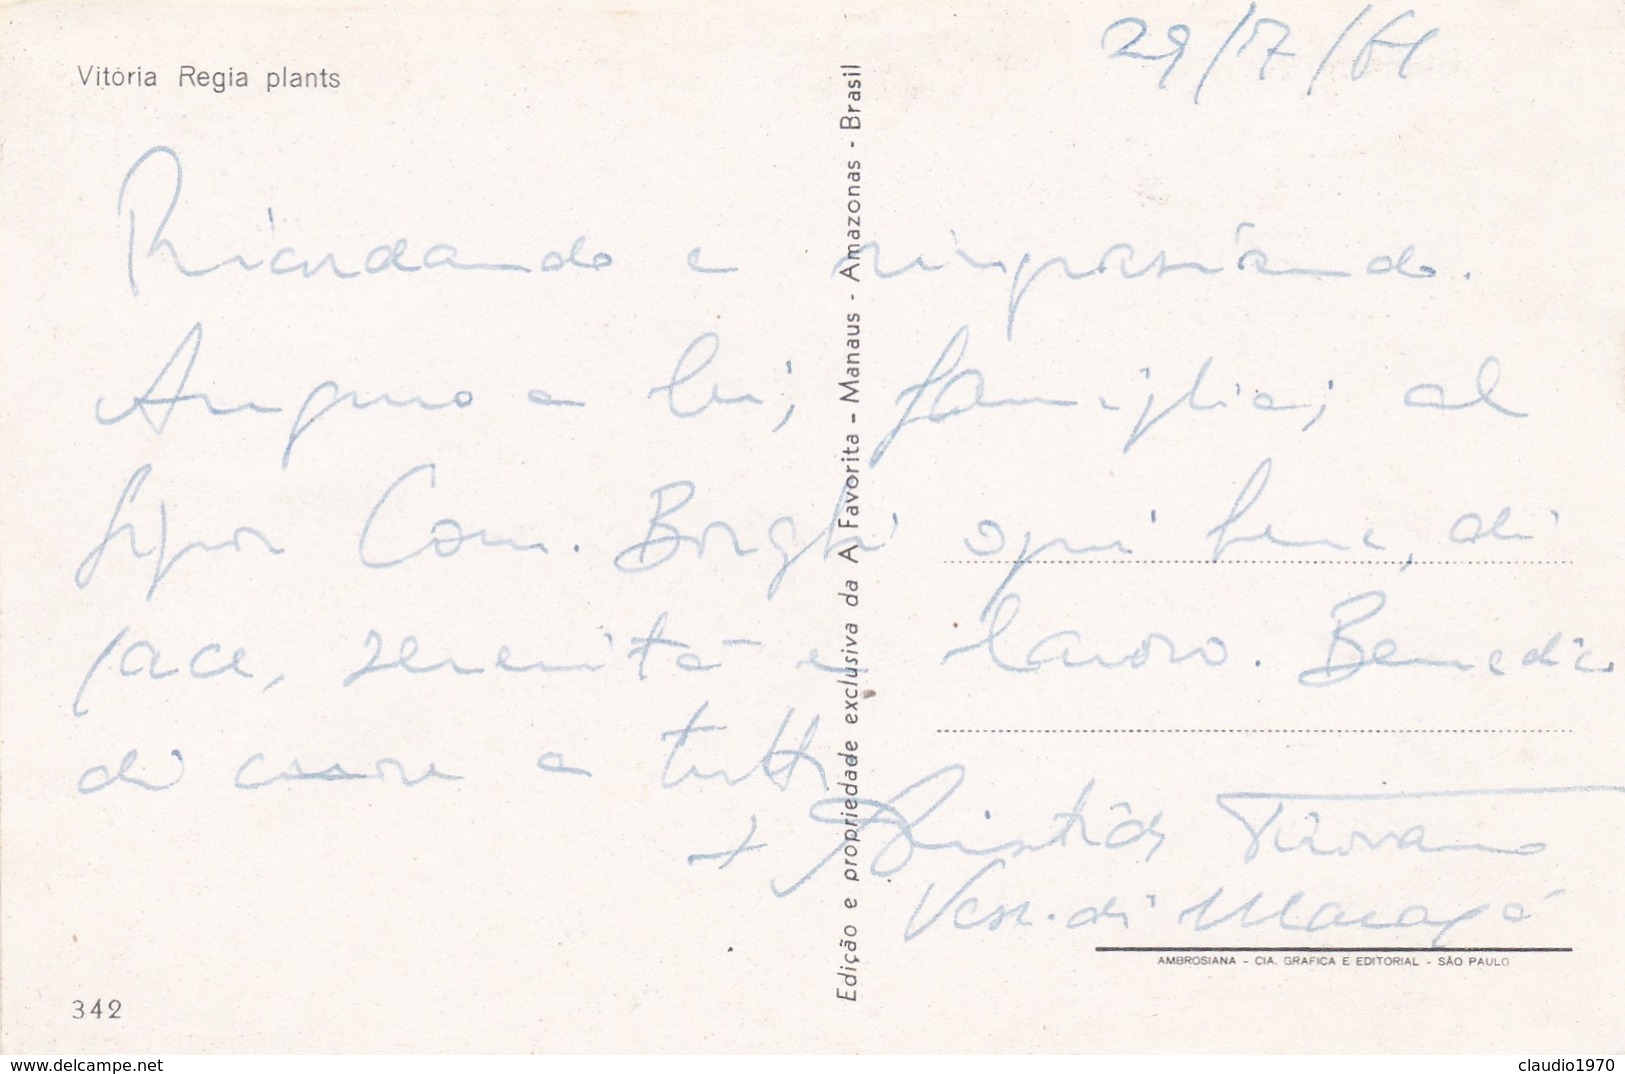 29/7/61
Vitória Regia plants
Ricordando e ringraziando.
Auguro a lui, famiglia, al
Signor Com. Borghi ogni bene, di
pace, serenità e lavoro. Benedico
di cuore a tutti
+ Aristide Pirovano
Vesc. di Macapá
Edição e propriedade exclusiva da A Favorita - Manaus - Amazonas - Brasil
AMBROSIANA - CIA. GRAFICA E EDITORIAL - SÃO PAULO
342
delcampe.net
claudio1970